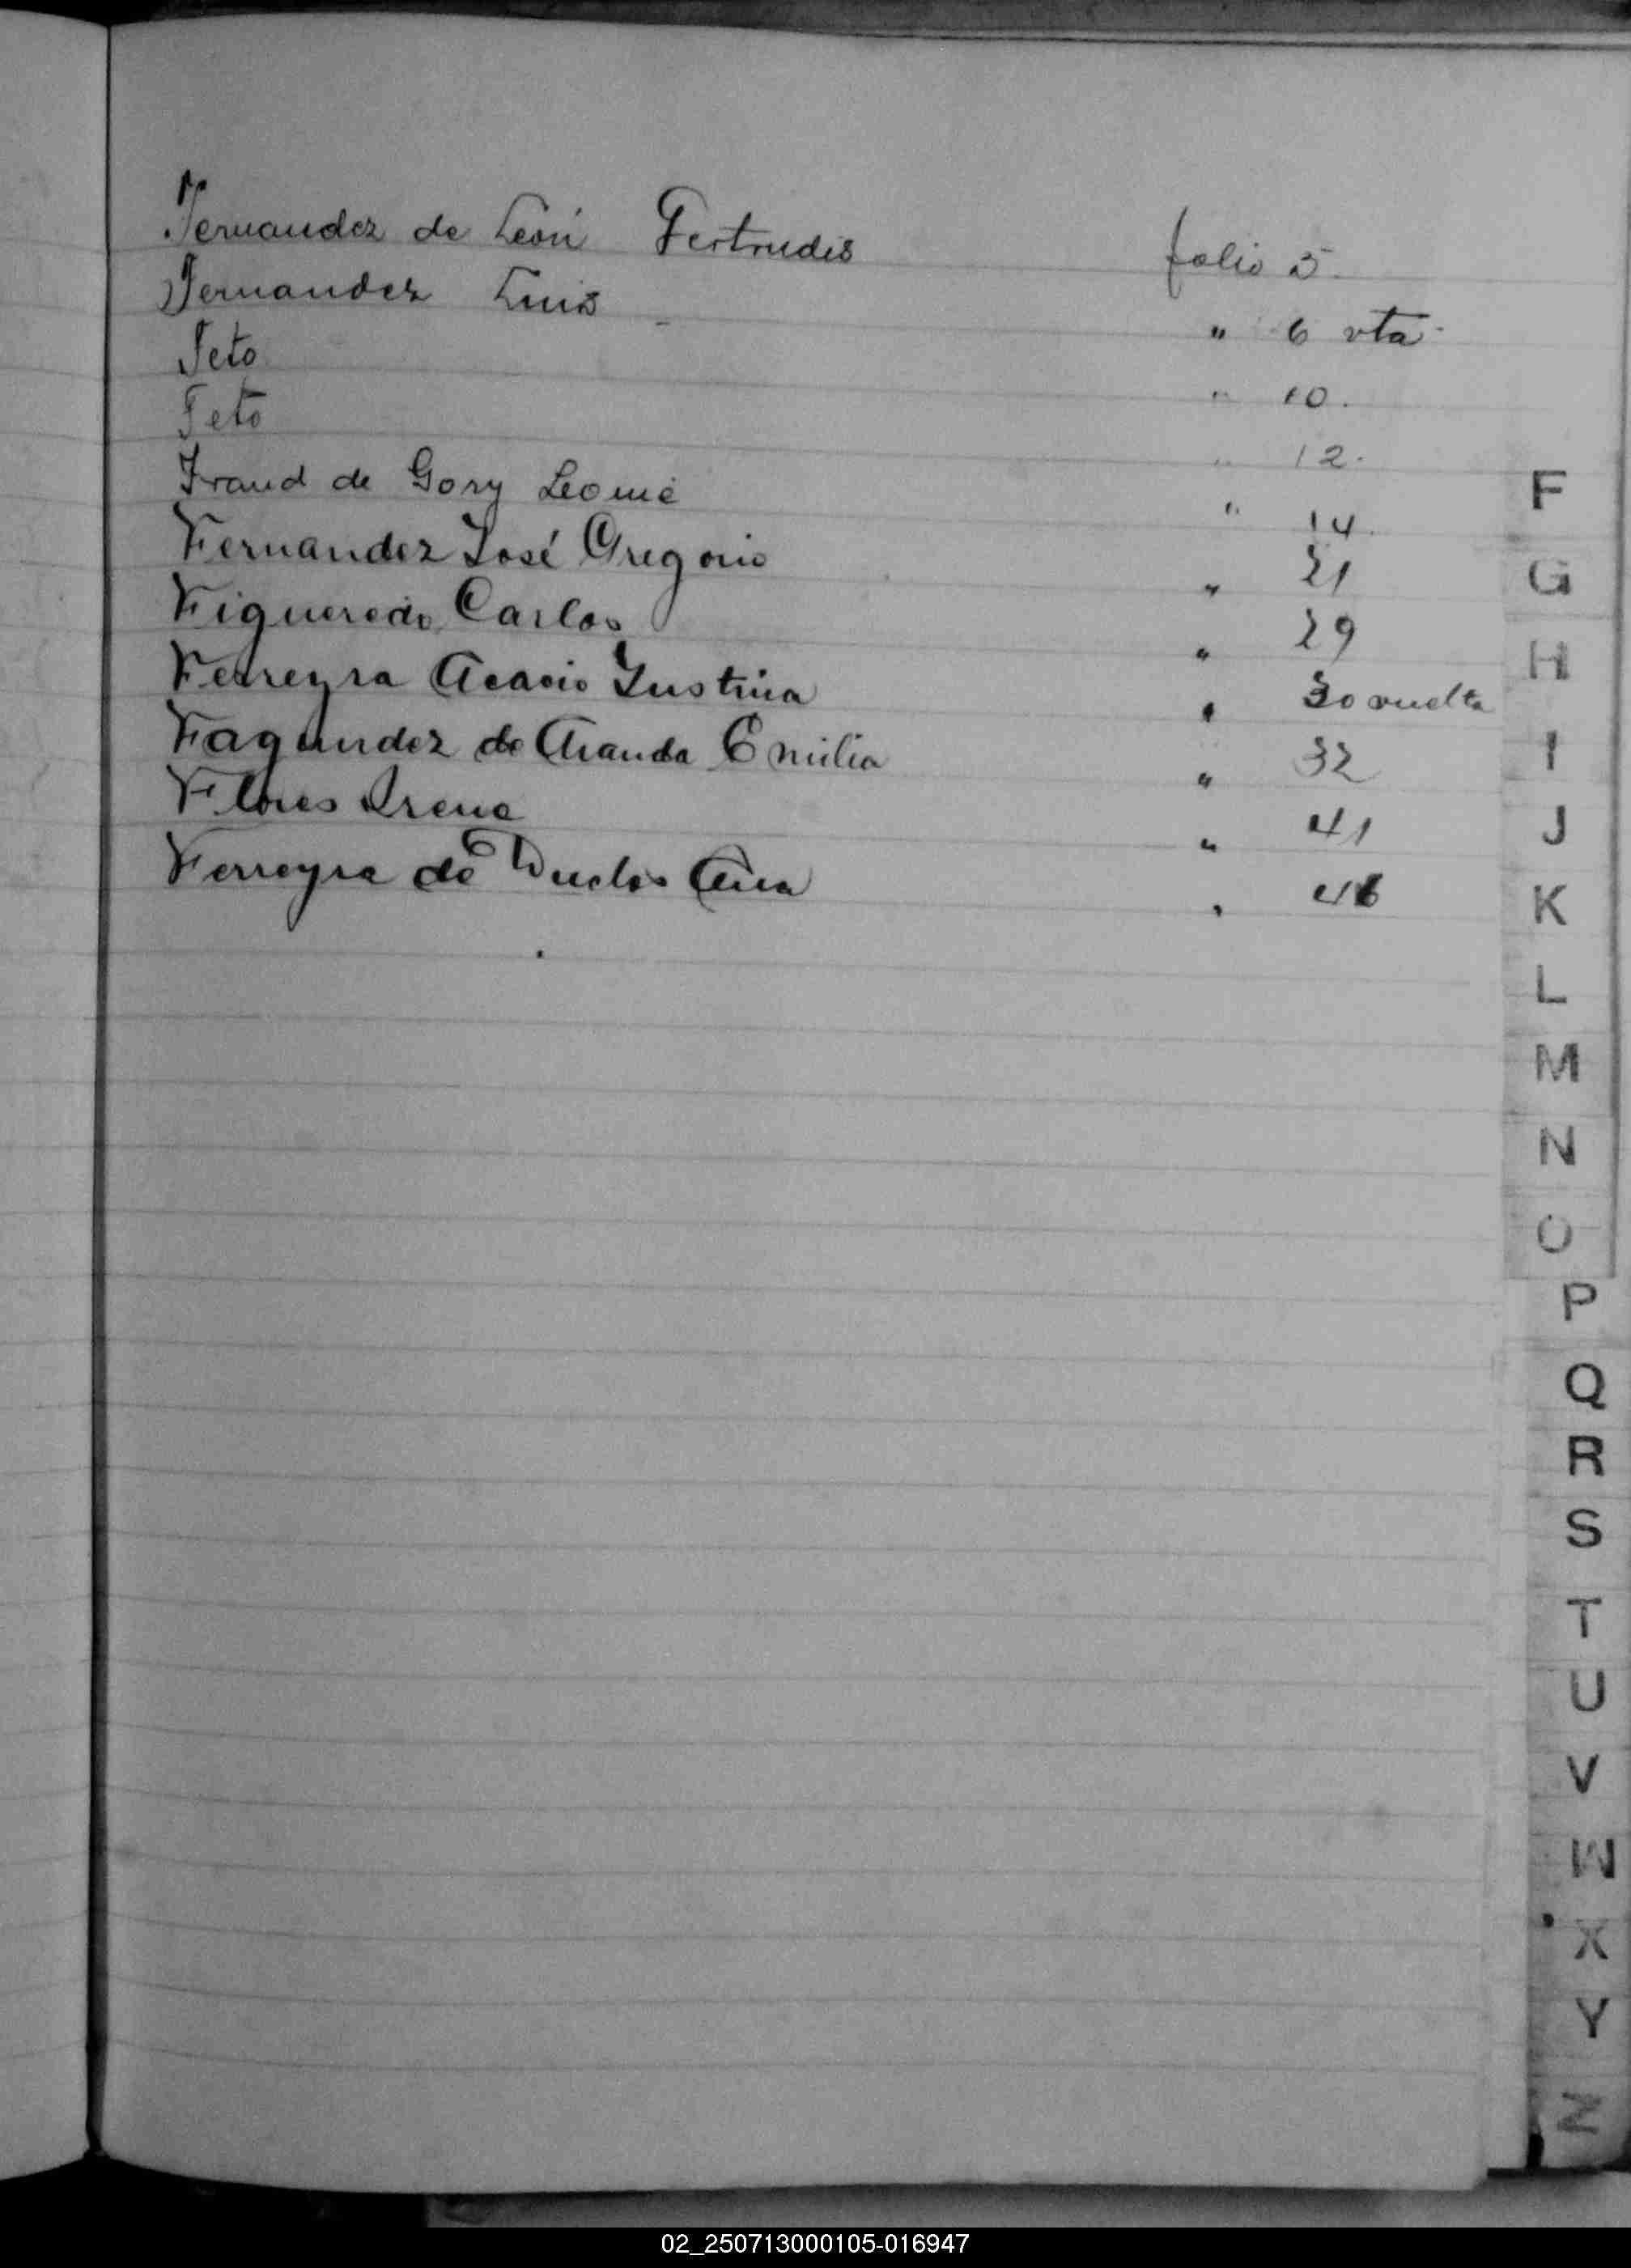 Fernandez de León Gertrudis folio 5.
Fernandez Luis " 6 vta.
Feto " 10.
Feto " 12.
Fraud de Gory Leonie " 14.
Fernandez José Gregorio " 21
Figueredo Carlos " 29
Ferreyra Acacio Justina " 30 vuelta
Fagundez de Aranda Emilia " 32
Flores Irene " 41
Ferreyra de Duclos Ana " 46
F
G
H
I
J
K
L
M
N
O
P
Q
R
S
T
U
V
W
X
Y
Z
02_250713000105-016947